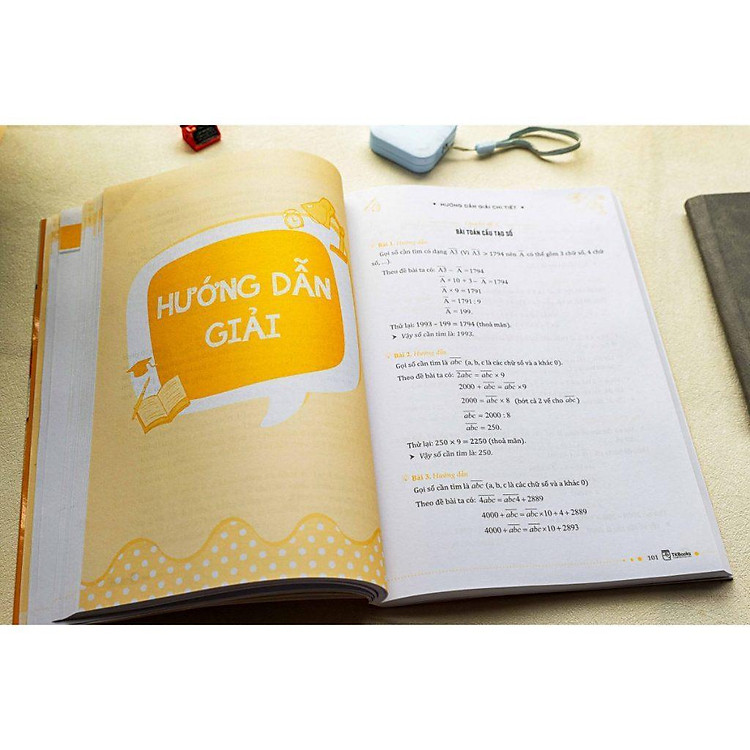 HƯỚNG DẪN
GIẢI
HƯỚNG DẪN GIẢI CHI TIẾT
BÀI TOÁN CẤU TẠO SỐ
Bài 1. Hướng dẫn
Gọi số cần tìm có dạng A̅3̅ (Vì A̅3̅ > 1794 nên A̅ có thể gồm 3 chữ số, 4 chữ
số, ...).
Theo đề bài ta có: A̅3̅ − A̅ = 1794
A̅ × 10 + 3 − A̅ = 1794
A̅ × 9 = 1791
A̅ = 1791 : 9
A̅ = 199.
Thử lại: 1993 – 199 = 1794 (thoả mãn).
➤ Vậy số cần tìm là: 1993.
Bài 2. Hướng dẫn
Gọi số cần tìm là a̅b̅c̅ (a, b, c là các chữ số và a khác 0).
Theo đề bài ta có: 2̅a̅b̅c̅ = a̅b̅c̅ × 9
2000 + a̅b̅c̅ = a̅b̅c̅ × 9
2000 = a̅b̅c̅ × 8 (bớt cả 2 vế cho a̅b̅c̅)
a̅b̅c̅ = 2000 : 8
a̅b̅c̅ = 250.
Thử lại: 250 × 9 = 2250 (thoả mãn).
➤ Vậy số cần tìm là: 250.
Bài 3. Hướng dẫn
Gọi số cần tìm là a̅b̅c̅ (a, b, c là các chữ số và a khác 0)
Theo đề bài ta có: 4̅a̅b̅c̅ = a̅b̅c̅4̅ + 2889
4000 + a̅b̅c̅ = a̅b̅c̅ × 10 + 4 + 2889
4000 + a̅b̅c̅ = a̅b̅c̅ × 10 + 2893
101 TKBooks